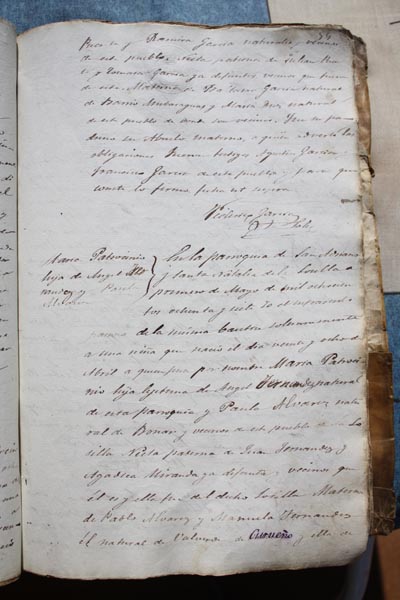 y Ramira García natural y
de este pueblo, nieta paterna de Julian
y García ya defuntos vecinos que fueron
de este. Materna de García natural
de Barrio y María Díez natural
de este pueblo de donde son vecinos.
su Abuelo materno, a quien advertí las
obligaciones. Fueron testigos Agustin García
Francisco García de este pueblo y para que
conste lo firmo fecha ut supra
García
Maria Patrocinio
hija de Angel
y Paula
En la parroquia de San Adriano
y Santa Natalia de la Losilla a
primero de Mayo de mil ochocien
tos ochenta y siete Yo el infrascrito
parroco de la misma Bauticé solemnemente
a una niña que nació el día veinte y ocho de
Abril a quien puse por nombre María Patroci
nio hija legítima de Angel Fernandez natural
de esta parroquia y Paula Alvarez natu
ral de Boñar y vecinos de este pueblo de la Lo
silla Nieta paterna de Juan Fernandez y
Agadea Miranda ya difunta y vecinos que
él es y ella fué del dicho Losilla Materna
de Pablo Alvarez y Manuela Fernandez
él natural de Valverde de Curueño y ella de